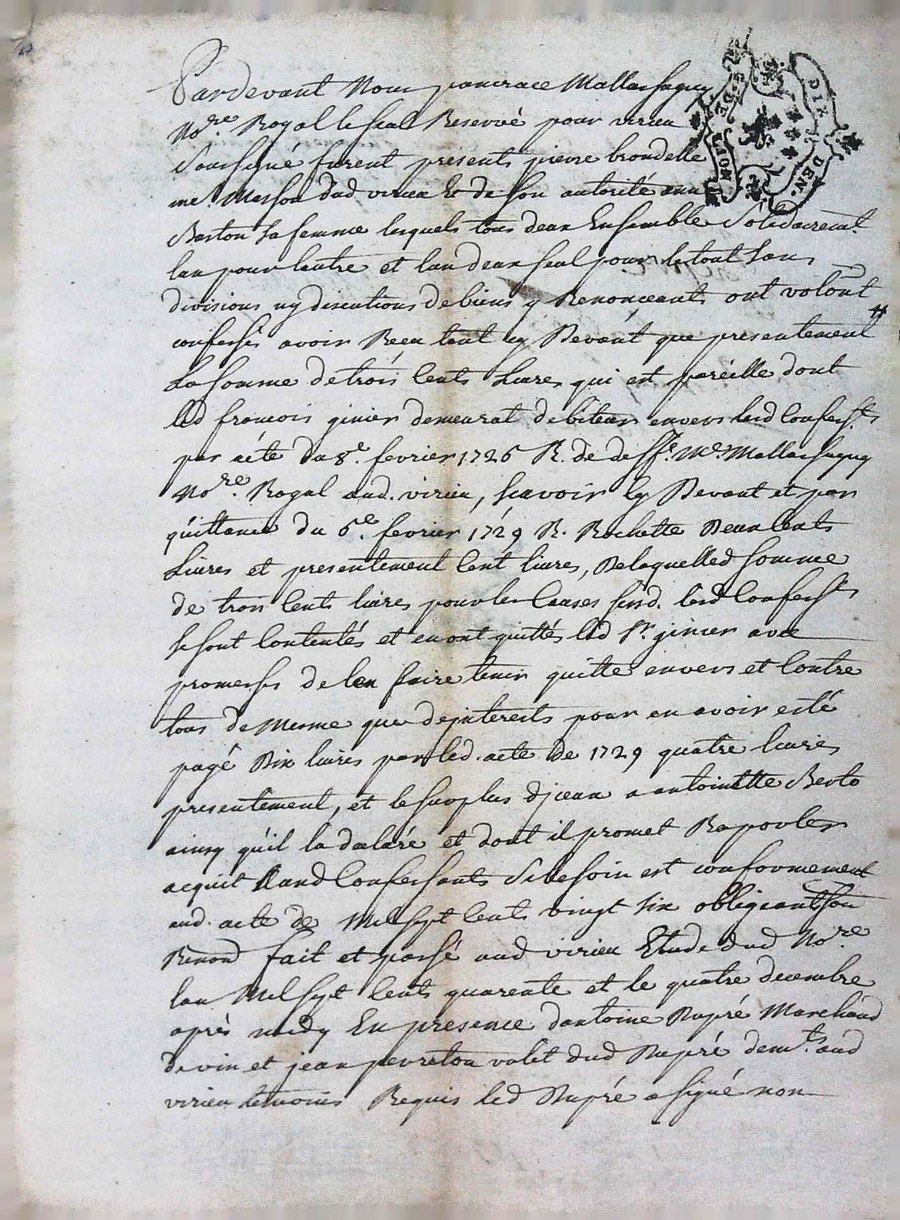 Pardevant Nous pancrace Mallassagny
No.re Royal le seal Reservé pour virieu
Soussigné furent presents pierre brondelle
me. Masson dud virieu Et de son autorité
Berton sa femme lesquels tous deux Ensemble Solidairemt.
lun pour lautre et lun deux seul pour le tout Sans
divisions ny discutions de biens y Renonceants ont volont
confessés avoir Receu tant cy Devant que presentement
La somme de trois Cents Livres qui est pareille dont
led francois ginier demeurat debiteur envers lesd Confess.ts
par acte du 8.e fevrier 1726 R. de Me. Mallassagny
No.re Royal aud. virieu, Scavoir cy Devant et par
quittance du 6.e fevrier 1729 R. Rochette Deux Cents
Livres et presentement Cent livres, De laquelled somme
de trois Cents livres pour les Causes susd. lesd Confess.ts
se sont Contentés et en ont quitté led Sr. ginier avec
promesses de len faire tenir quitte envers et Contre
tous de Mesme que dejnterests pour en avoir esté
payé Dix livres par led. acte de 1729 quatre livres
presentement, et le surplus djceux a antoinette Berto
ainsy qu'il la déclaré et dont il promet Raporter
acquit Auxd Confessants Si besoin est conformement
aud. acte de Mil Sept Cents vingt Six obligeant Son
Renond fait et passé aud virieu Etude dud No.re
lan Mil Sept Cents quarente et le quatre decembre
après midy En presence dantoine Dupré Marchand
de vin et jean peyreton valet dud Dupré demt. aud
virieu temoins Requis led Dupré a signé non
GIE DEN.
DE LION